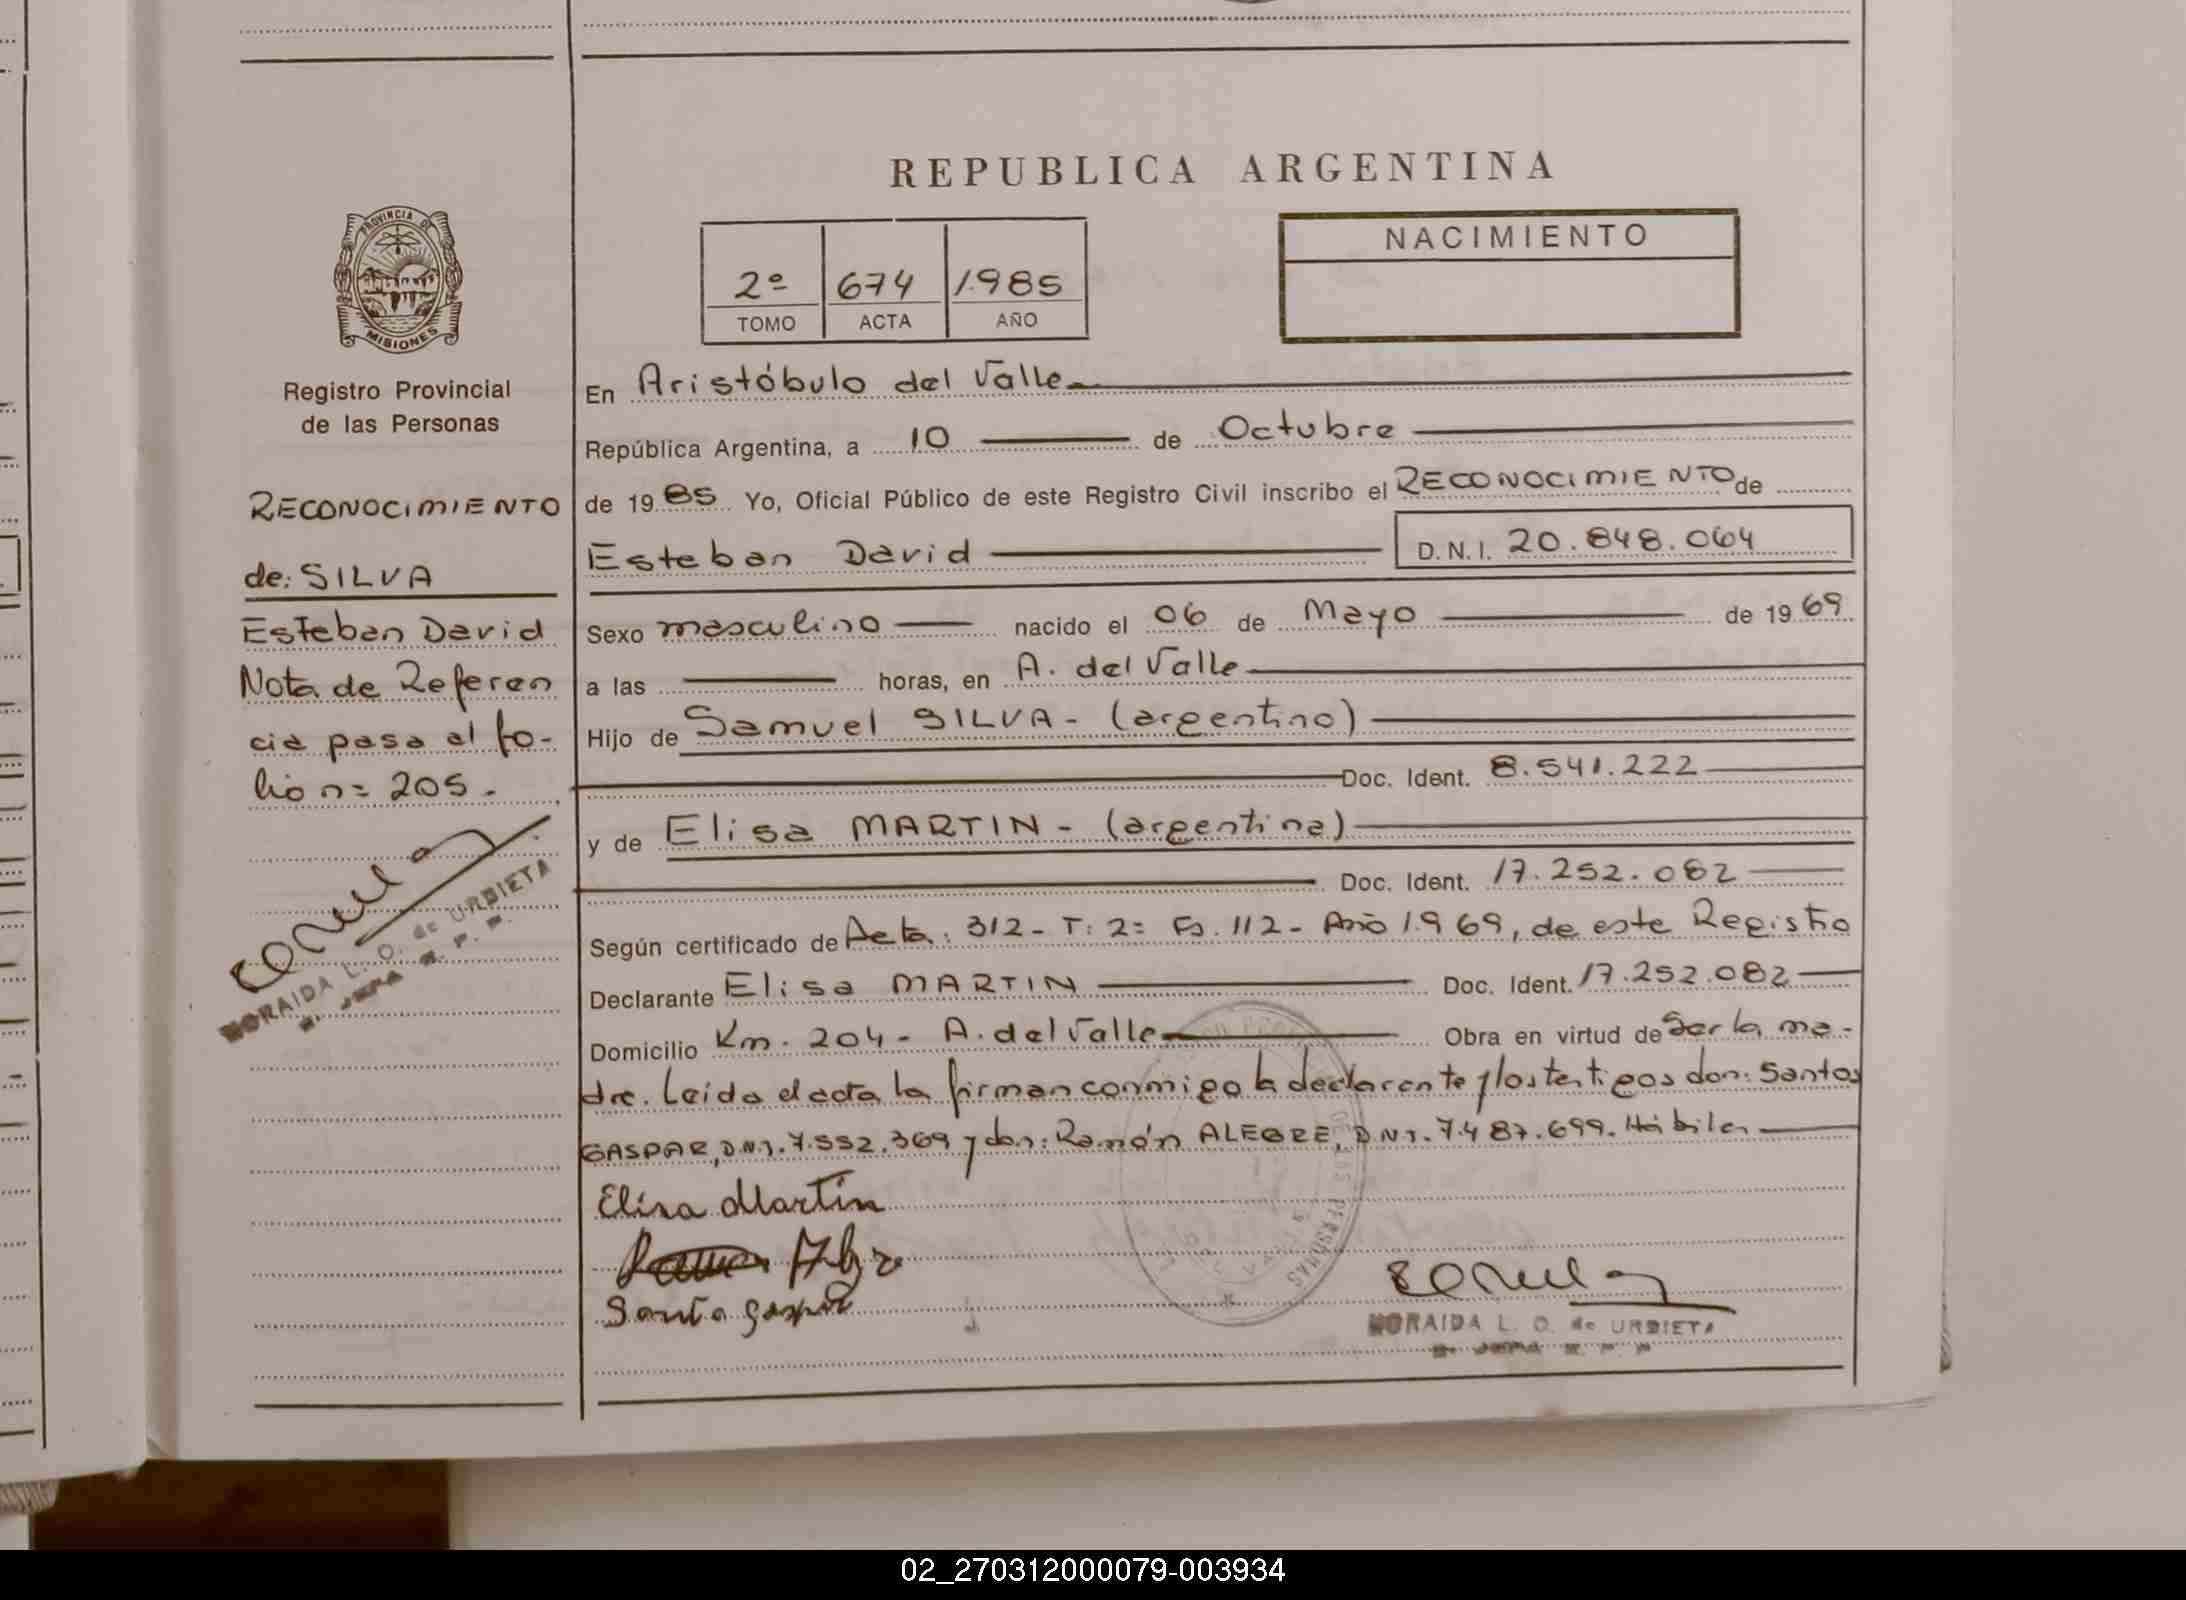 REPUBLICA ARGENTINA
PROVINCIA DE
MISIONES
Registro Provincial
de las Personas
RECONOCIMIENTO
de: SILVA
Esteban David
Nota de Referen
cia pasa al fo-
lio n= 205.
NORAIDA L. O. de URDIETA
2º 674 1.985
TOMO ACTA AÑO
NACIMIENTO
En Aristóbulo del Valle
República Argentina, a 10 de Octubre
de 1985 Yo, Oficial Público de este Registro Civil inscribo el RECONOCIMIENTO de
Esteban David D.N.I. 20.848.064
Sexo masculino nacido el 06 de Mayo de 1969
a las horas, en A. del Valle
Hijo de Samuel SILVA - (argentino)
Doc. Ident. 8.541.222
y de Elisa MARTIN - (argentina)
Doc. Ident. 17.252.082
Según certificado de Acta: 312 - T: 2= Fs. 112 - Año 1.969, de este Registro
Declarante Elisa MARTIN Doc. Ident. 17.252.082
Domicilio Km. 204 - A. del Valle Obra en virtud de Ser la ma-
dre. Leida el acta la firman conmigo la declarante y los testigos don: Santos
GASPAR, D.N.I. 7.552.369 y don: Ramón ALEGRE, D.N.I. 7.487.699. Hábiles
Elisa Martín
Santo Gaspar
PERSONAS
NORAIDA L. O. de URDIETA
02_270312000079-003934